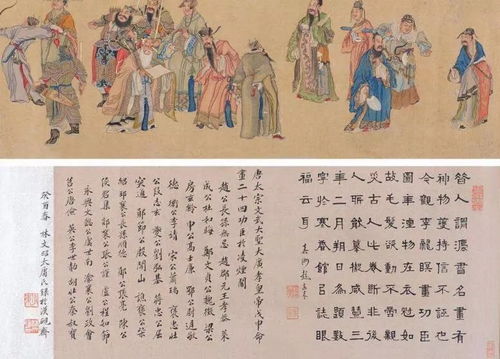 昔人謂濃書名畫有
神物護持信不誣也
今觀李龍眠畫功臣
圖 物在衣冠如
故毛髮欲動不啻觀
古人此卷斷非後
人所敢摹成 三
年二月朔日為
字於寒香館㠯誌眼
福云耳
唐太宗文武大聖大廣孝皇帝戊申命
畫二十四功臣於凌煙閣
趙公長孫無忌 趙郡元王孝恭 萊
成公杜如晦 鄭文貞公魏徵 梁公
房玄齡 申公高士廉 鄂公尉遲敬
德 衛公李靖 宋公蕭瑀 褒忠壯
公段志玄 夔公劉弘基 蔣忠公屈
突通 鄖節公殷開山 譙襄公柴
紹 邳襄公長孫順德 鄖公張亮 陳公
侯君集 郯襄公張公謹 盧公程知節
永興文懿公虞世南 渝襄公劉政會
莒公唐儉 英公李世勣 胡壯公秦叔寶
癸酉春 林文昭 氏錄於漢硯齋